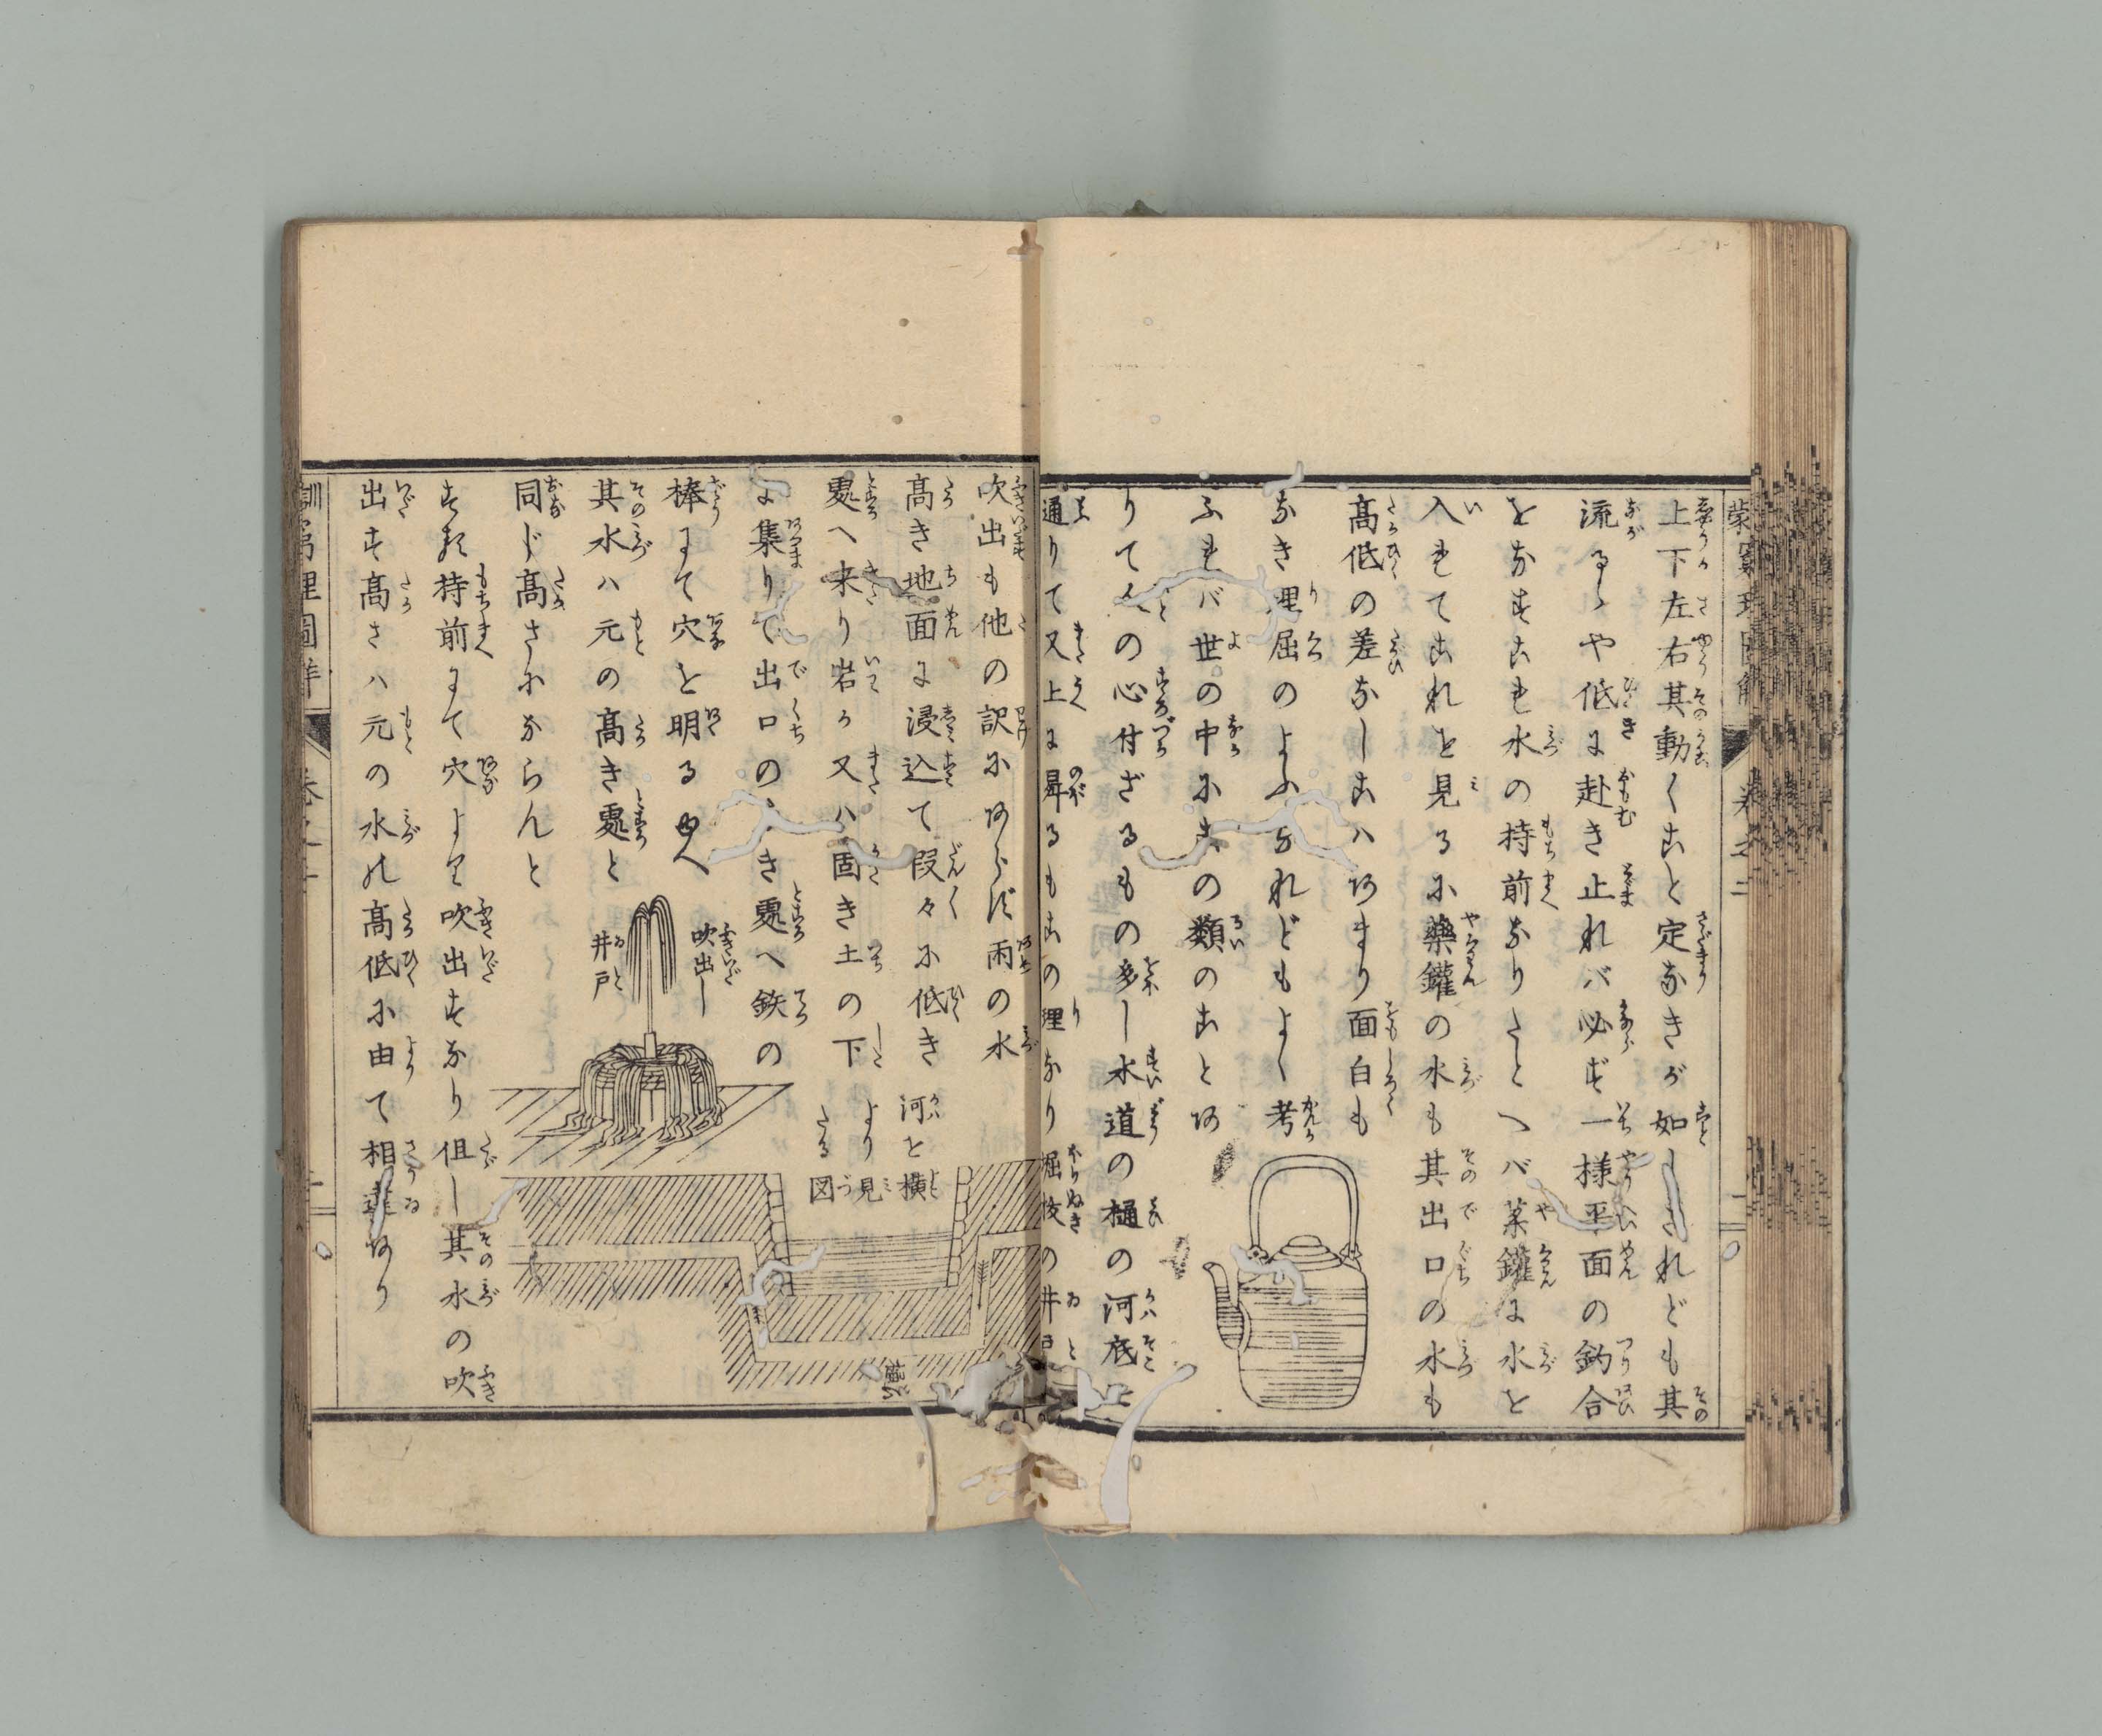 上下左右其動くこと定なきが如しされども其
流るゝや低に赴き止れバ必ず一様平面の釣合
をなすこれ水の持前なりたとへバ薬鑵に水を
入れてこれを見るに藥鑵の水も其出口の水も
高低の差なしこハあまり面白も
なき理屈のよふなれどもよく考
ふれバ世の中にこの類のことあ
りて人の心付ざるもの多し水道の樋の河底を
通りて又上に昇るもこの理なり堀抜の井戸
吹出も他の訳にあらず雨の水
高き地面に浸込て段々に低き
處へ来り岩か又ハ固き土の下
に集りて出口のなき處へ鉄の
棒にて穴を明るゆへ
其水ハ元の高き處と
同じ高さにならんと
する持前にて穴より吹出すなり但し其水の吹
出す高さハ元の水の高低に由て相違あり
吹出し
井戸
河を横
より見
たる図
樋